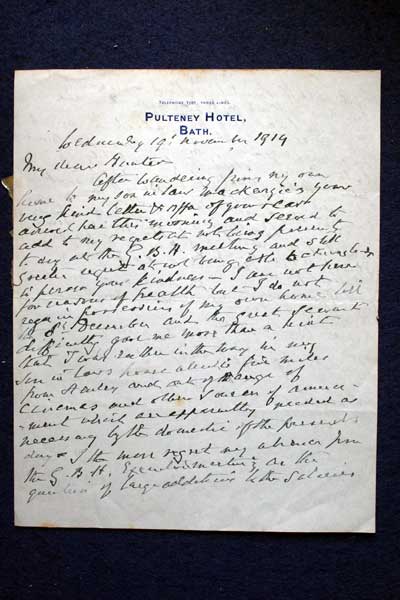 TELEPHONE 1257, THREE LINES.
PULTENEY HOTEL,
BATH.
Wednesday 19. November 1919
My dear Hunter
After wandering from my own
home to my son in law Mackenzie's your
very kind letter & offer of your
arrived here this morning and served to
add to my regrets at not being present
to day at the G.B.H. meeting and still
greater regret at not being able to
to your kindness — I am not here
for reasons of health but I do not
regain possession of my own home till
the 8th December and the great servant
difficulty gave me more than a hint
that I was rather in the way in my
son in law's house about five miles
from and out of the range of
Cinemas and other sources of amuse-
-ment which are apparently needed as
necessary by the domestic of the present
day — I the more regret my absence from
the G.B.H. Executive meeting as the
question of large additions to the Salaries